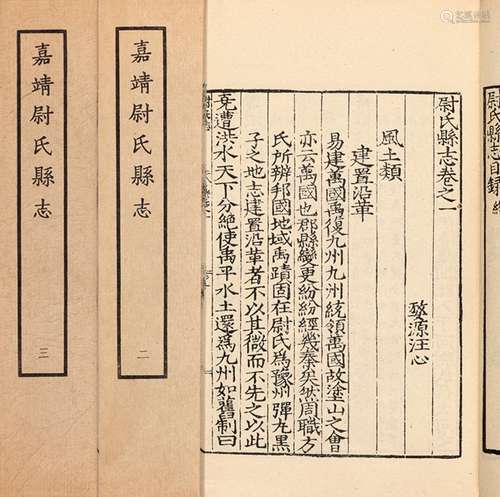 尉氏縣志目錄終
尉氏縣志卷之一
婺源汪心
風土類
建置沿革
易建萬國禹復九州九州統領萬國故塗山之會
亦云萬國也郡縣變更紛紛經幾秦矣然周職方
氏所辨邦國地域禹蹟固在尉氏爲豫州彈九黑
子之地志建置沿革者不以其微而不先之以此
堯遭洪水天下分絶使禹平水土還爲九州如舊制曰
嘉靖尉氏縣志
二
嘉靖尉氏縣志
三